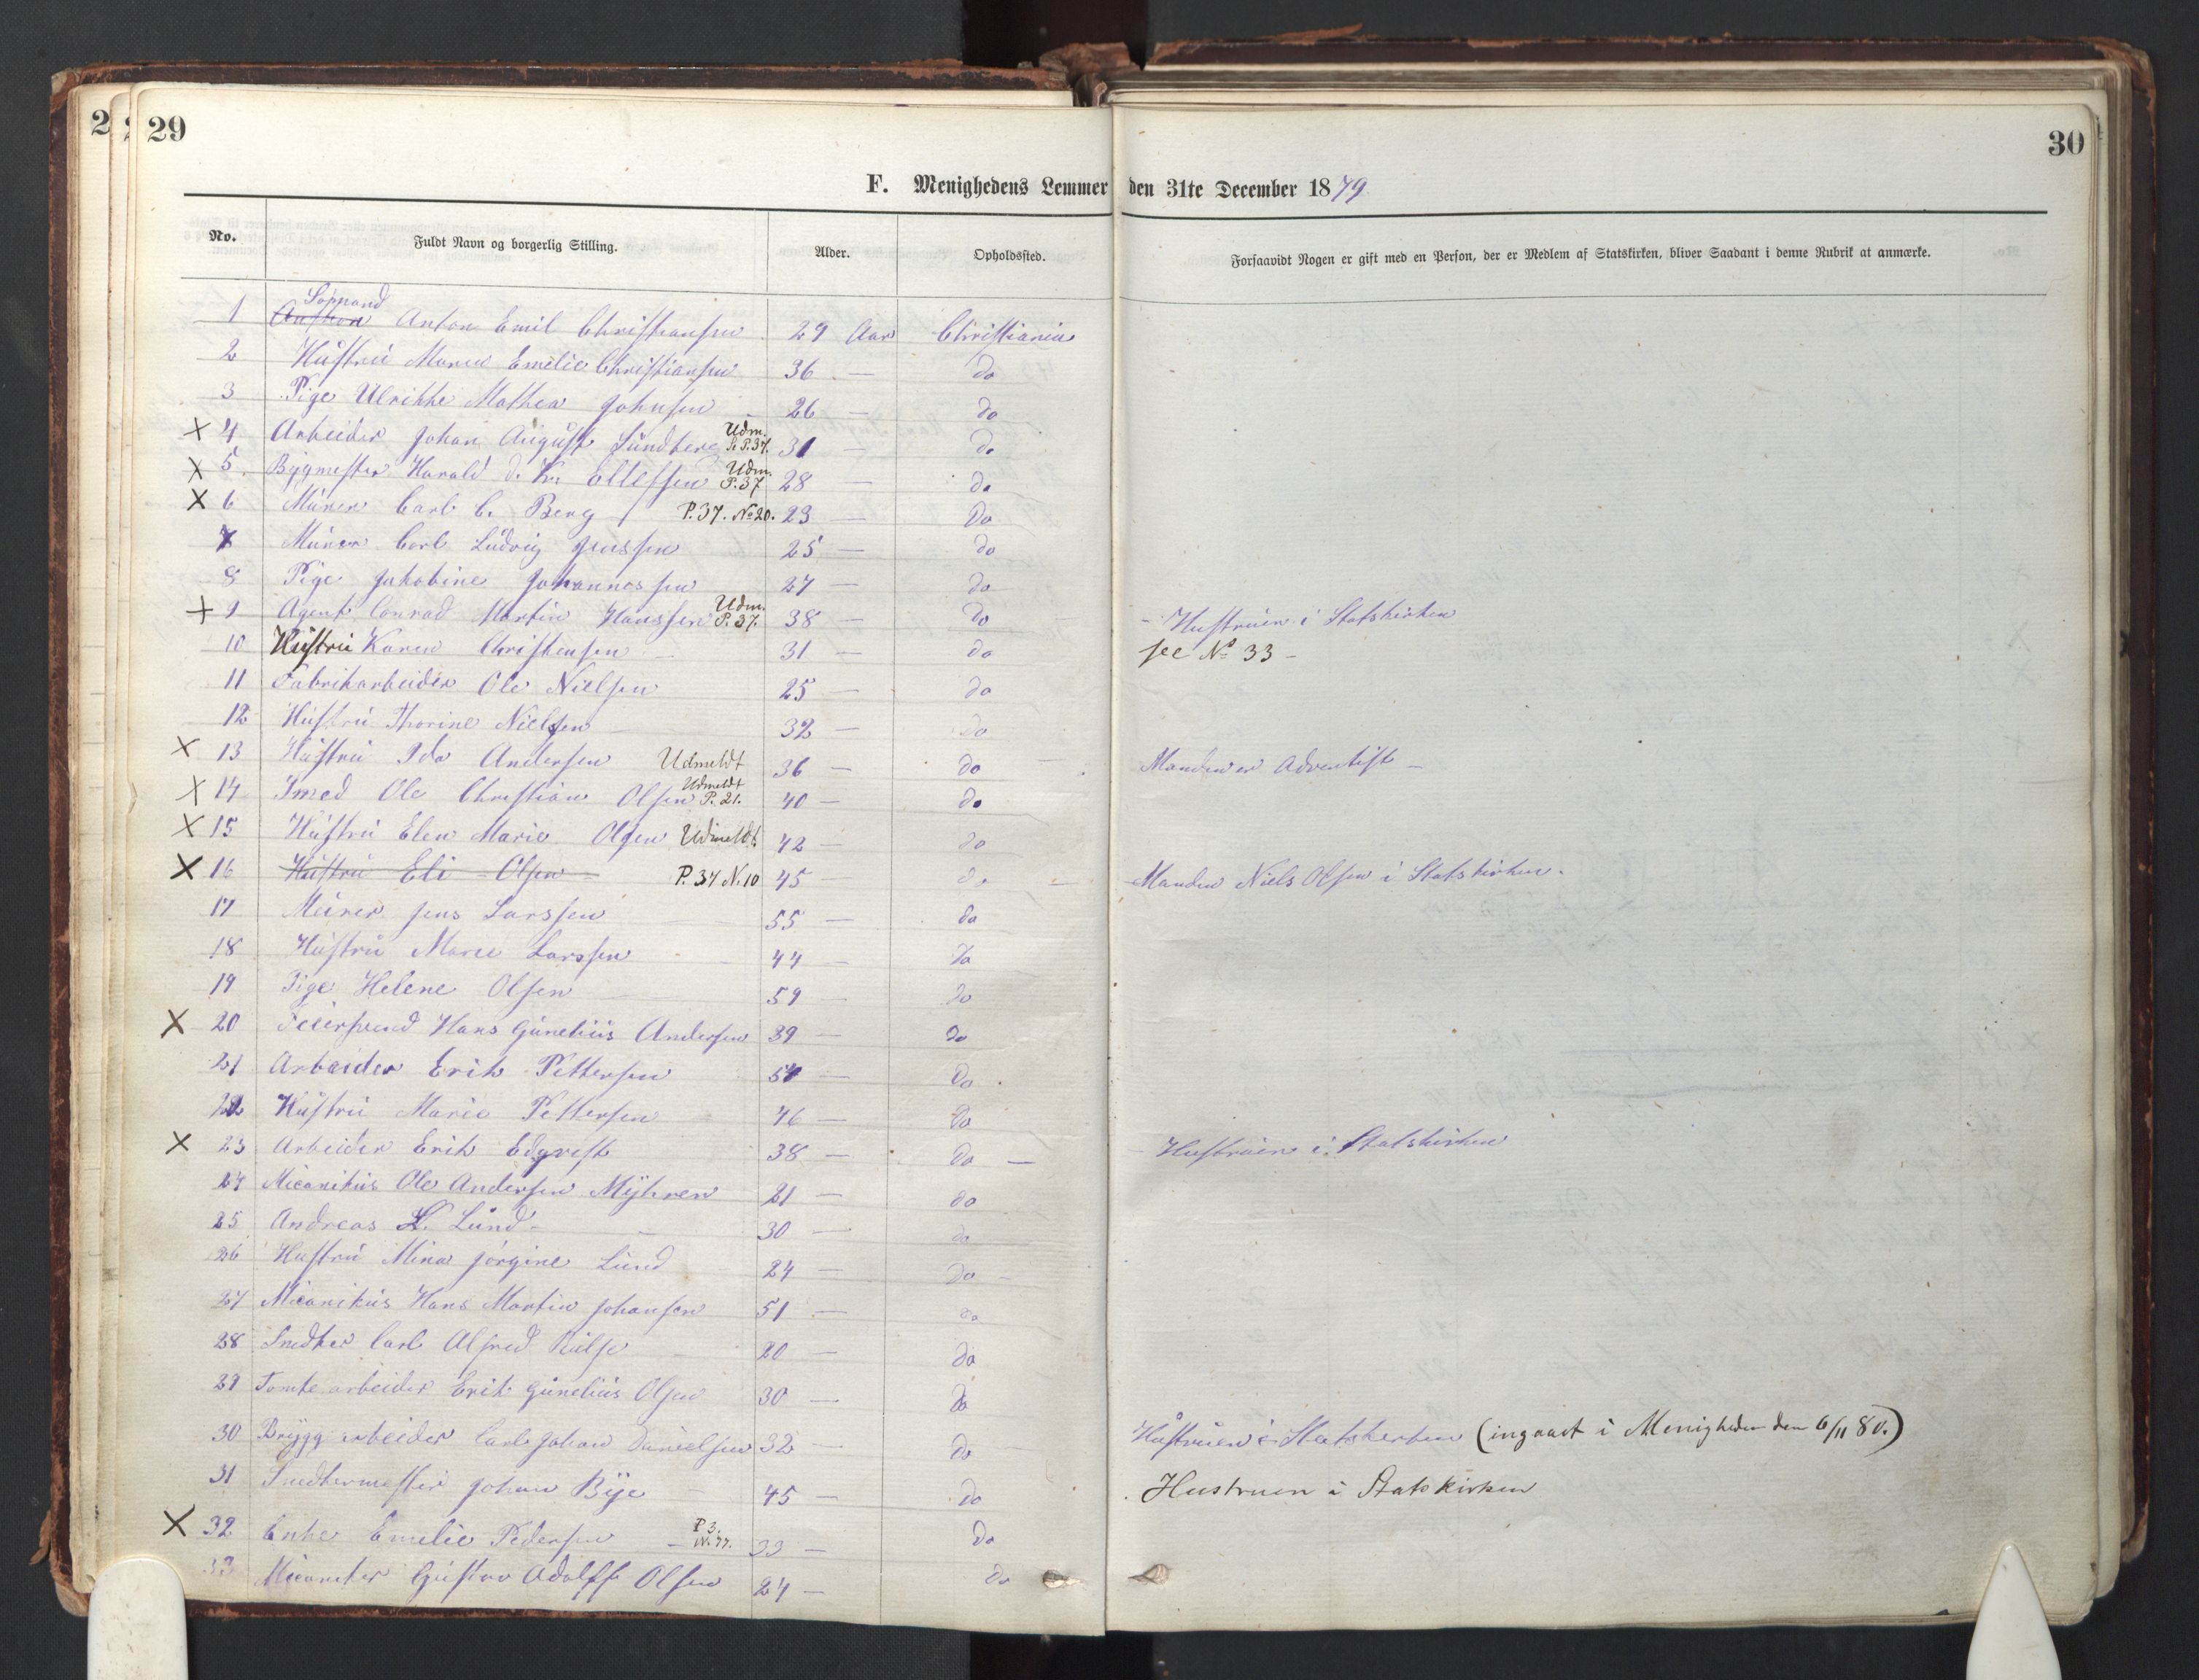 29
30
F. Menighedens Lemmer den 31te December 1879
No. Fuldt Navn og borgerlig Stilling. Alder. Opholdssted. Forsaavidt Nogen er gift med en Person, der er Medlem af Statskirken, bliver Saadant i denne Rubrik at anmærke.
1 Anton Emil Christiansen 29 Aar Christiania
2 Hustru Maren Emelie Christiansen 36 — do
3 Pige Ulrikke Mathea Johnsen 26 — do
X 4 Arbeider Johan August Lundberg Udm. P. 37. 31 do
X 5. Bygmester Harald Kr. Ellefsen Udm. P. 37 28 — do
X 6 Murer Carl C. Berg P. 37. No 20. 23 — Do
7 Murer Carl Ludvig Jenssen 25 — do
8 Pige Jakobine Johannessen 27 — do
X 9 Agent Conrad Martin Hanssen Udm. P. 37. 38 — do — Hustruen i Statskirken
10 Hustru Karen Christensen 31 — do see No 33 —
11 Fabrikarbeider Ole Nielsen 25 — do
12 Hustru Thorine Nielsen 32 — do
X 13 Hustru Ida Andersen Udmeldt 36 — do Manden er Adventist —
X 14 Smed Ole Christian Olsen Udmeldt P. 21. 40 — do
X 15 Hustru Elen Marie Olsen Udmeldt 42 — do
X 16 Hustru Eli Olsen P. 37 N. 10 45 — do Manden Niels Olsen i Statskirken.
17 Murer Jens Larssen 55 — do
18 Hustru Maree Larssen 44 — do
19 Pige Helene Olsen 59 — do
X 20 Hans Gunelius Andersen 39 — do
21 Arbeider Erik Pettersen 51 — Do
22 Hustru Marie Pettersen 46 — Do
X 23 Arbeider Erik Edqvist 38 — Do — Hustruen i Statskirken
24 Micanikus Ole Andersen Myhren 21 — do
25 Andreas K. Lund 30 — do
26 Hustru Mina Jorgine Lund 24 — Do
27 Micanikus Hans Martin Johansen 51 — do
28 Snedker Carl Alfred 20 — do
29 Tomte arbeider Erik Gunelius Olsen 30 — do
30 Brygg arbeider Carl Johan Danielsen 32 — do Hustruen i Statskerken (ingaaet i Menigheden den 6/11 80.)
31 Snedkermester Johan Bye 45 — do Hustruen i Statskirken
X 32 Enke Emelie Pedersen P 3. N. 77. 33 — Do
33 Micaneker Gustav Adolff Olsen 24 — do